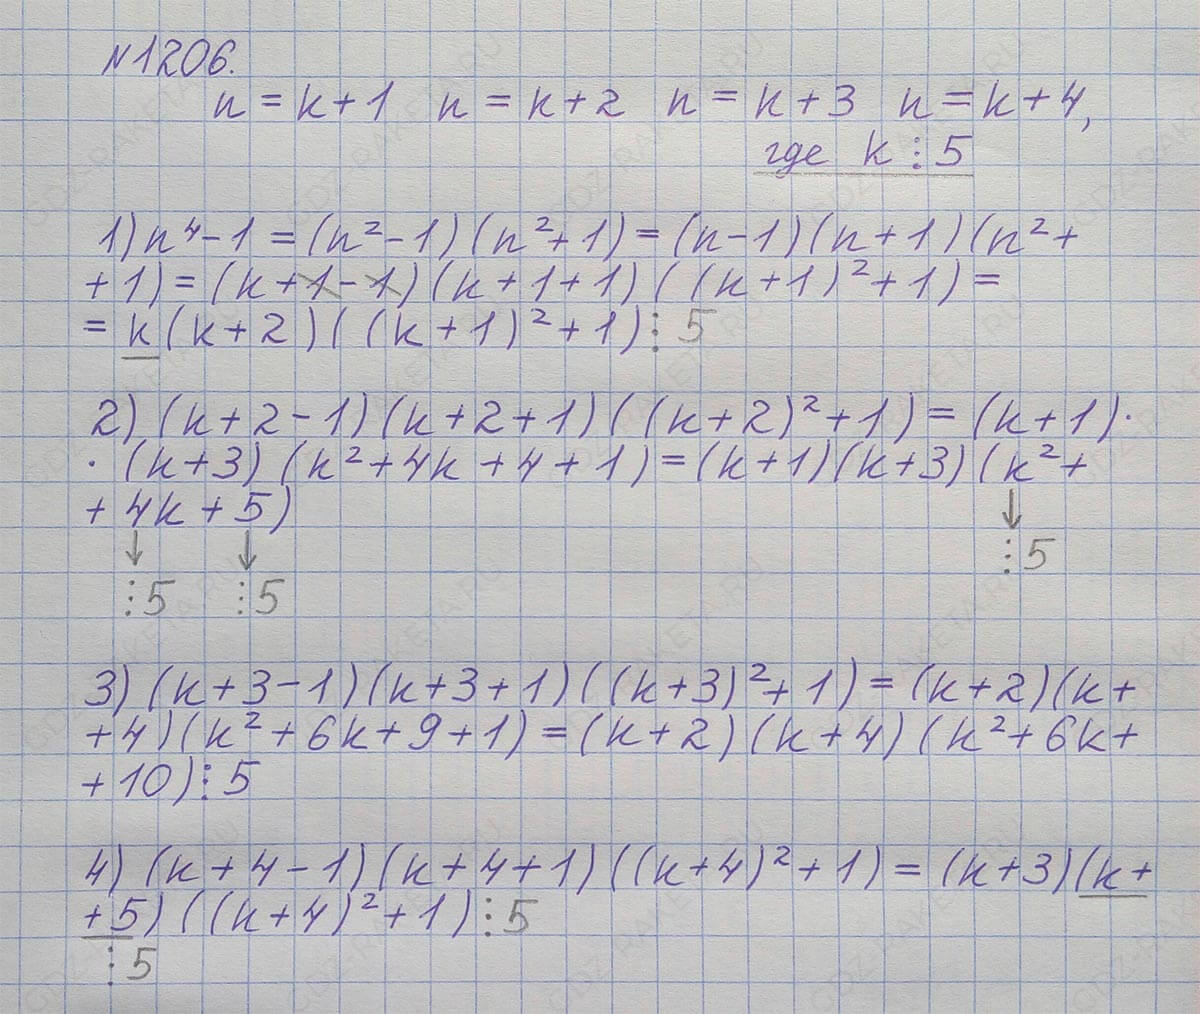 N1206.
n = k+1 n = k+2 n = k+3 n = k+4,
где k ⋮ 5
1) n⁴-1 = (n²-1)(n²+1) = (n-1)(n+1)(n²+
+1) = (k+1-1)(k+1+1)((k+1)²+1) =
= k(k+2)((k+1)²+1) ⋮ 5
2) (k+2-1)(k+2+1)((k+2)²+1) = (k+1)·
·(k+3)(k²+4k+4+1) = (k+1)(k+3)(k²+
+4k+5)
↓ ↓ ↓
⋮5 ⋮5 ⋮5
3) (k+3-1)(k+3+1)((k+3)²+1) = (k+2)(k+
+4)(k²+6k+9+1) = (k+2)(k+4)(k²+6k+
+10) ⋮ 5
4) (k+4-1)(k+4+1)((k+4)²+1) = (k+3)(k+
+5)((k+4)²+1) ⋮ 5
⋮5